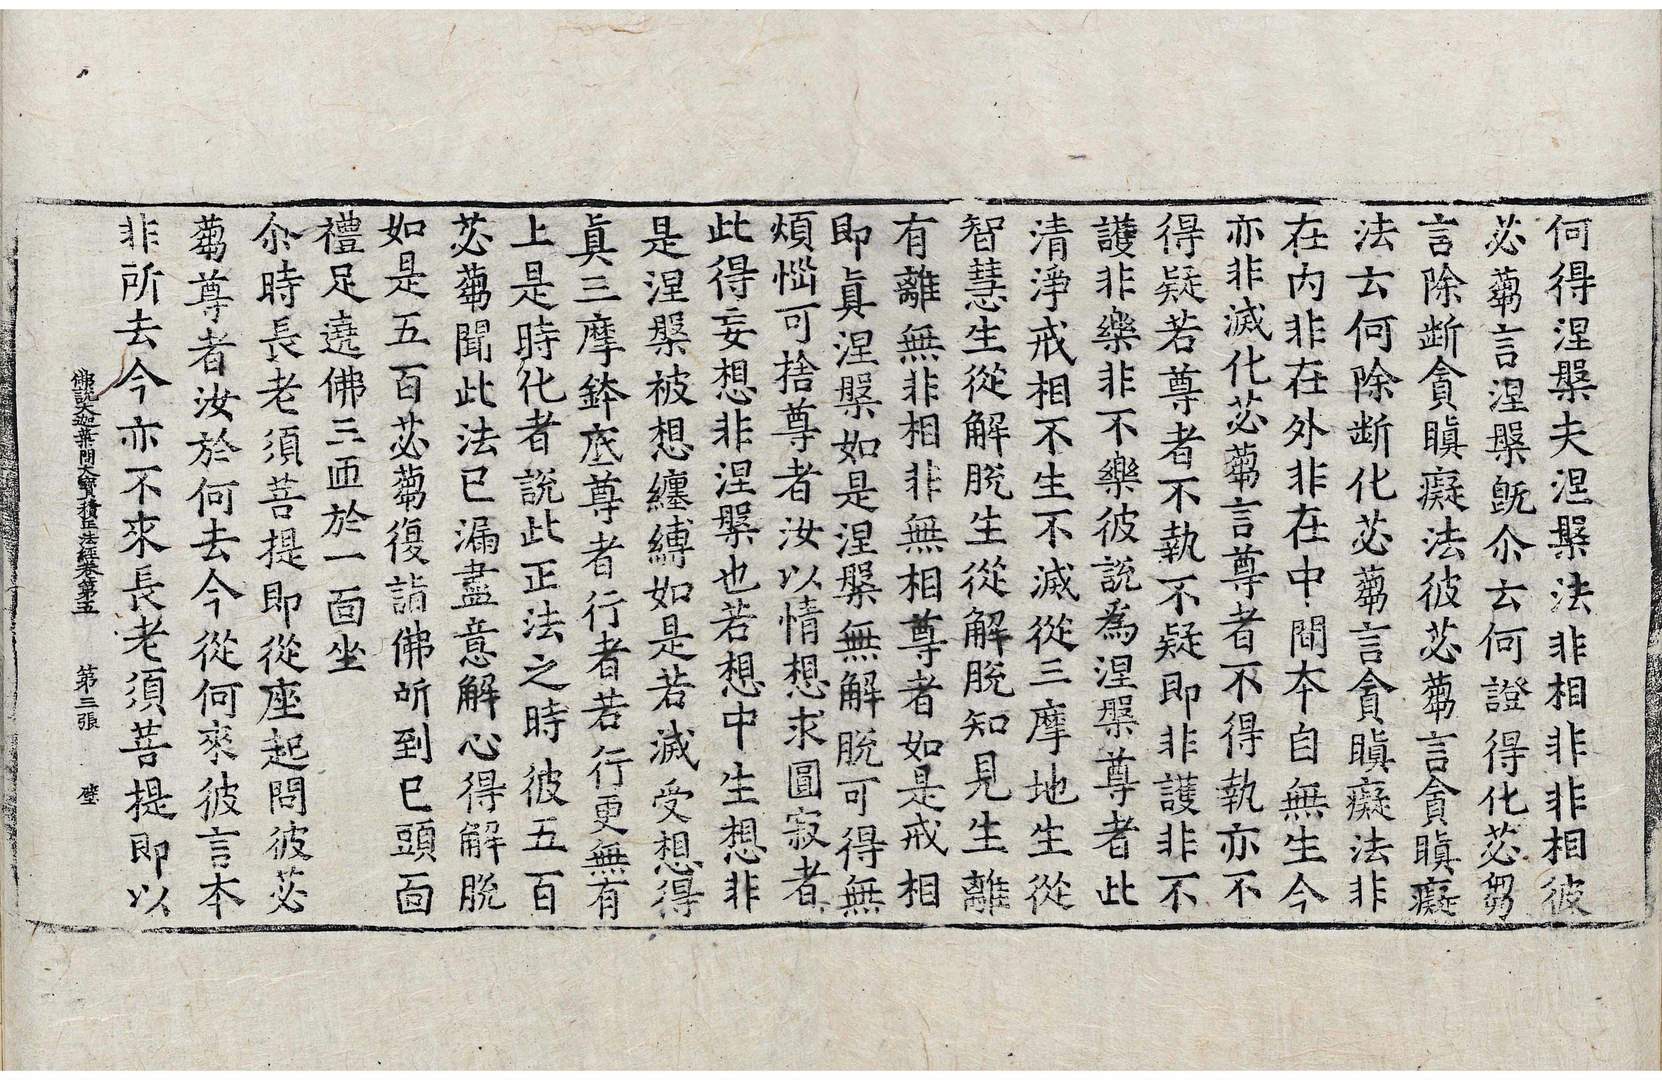 何得涅槃夫涅槃法非相非非相彼
苾蒭言涅槃旣尒云何證得化苾蒭
言除斷貪瞋癡法彼苾蒭言貪瞋癡
法云何除斷化苾蒭言貪瞋癡法非
在内非在外非在中閒本自無生今
亦非滅化苾蒭言尊者不得執亦不
得疑若尊者不執不疑即非護非不
護非樂非不樂彼說爲涅槃尊者此
清淨戒相不生不滅從三摩地生從
智慧生從解脫生從解脫知見生離
有離無非相非無相尊者如是戒相
即眞涅槃如是涅槃無解脫可得無
煩惱可捨尊者汝以情想求圓寂者
此得妄想非涅槃也若想中生想非
是涅槃被想纏縛如是若滅受想得
眞三摩鉢底尊者行者若行更無有
上是時化者說此正法之時彼五百
苾蒭聞此法已漏盡意解心得解脫
如是五百苾蒭復詣佛所到已頭面
禮足遶佛三匝於一面坐
尒時長老須菩提即從座起問彼苾
蒭尊者汝於何去今從何來彼言本
非所去今亦不來長老須菩提即以
佛說大迦葉問大寶積正法經卷第五 第三張 璧